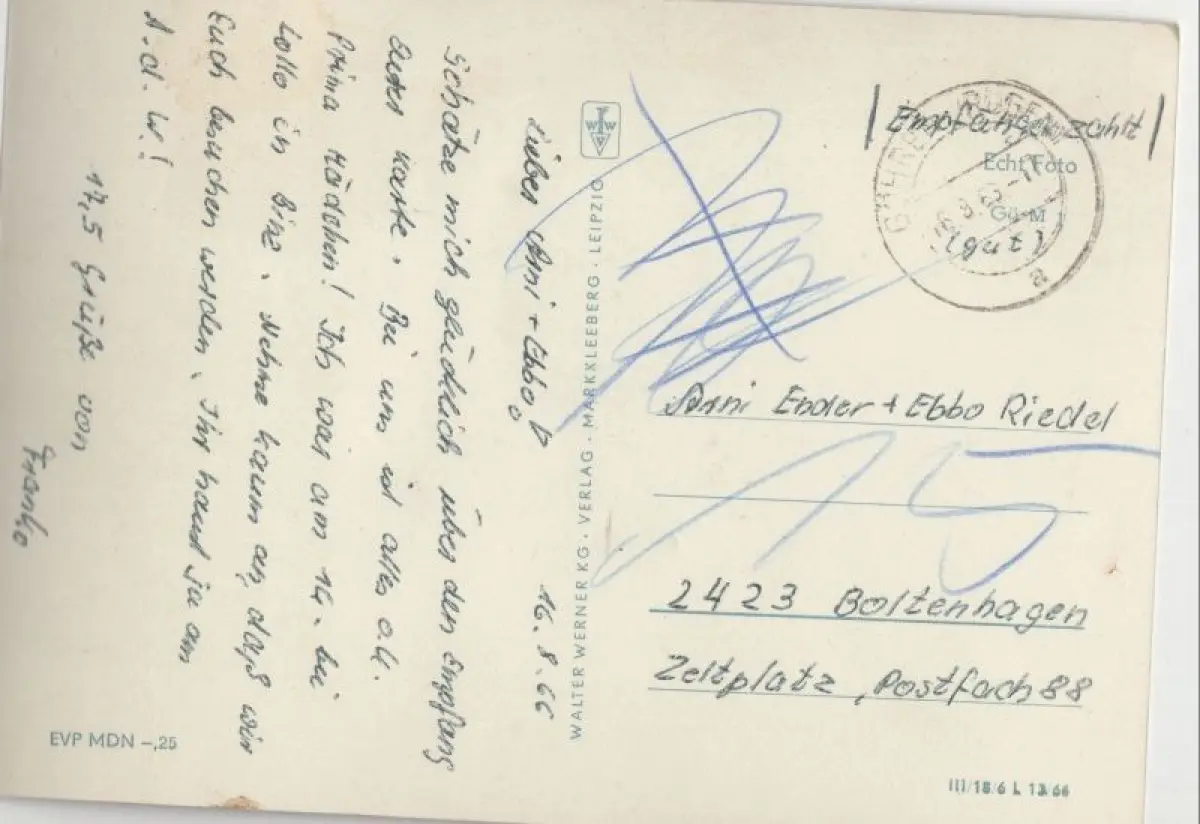 16.8.66
Lieber Arni + Ebbo!
Schätze mich glücklich über den Empfang
Eurer Karte. Bei uns ist alles o.k.
Prima Mädchen! Ich war am 14. bei
Lollo in Binz. Nehme kaum an, daß wir
Euch besuchen werden. Ihr haut ja am
A.d.W.!
17,5 Grüße von
Franko
EVP MDN –,25
WALTER WERNER KG · VERLAG · MARKKLEEBERG · LEIPZIG
WWV
Empfänger zahlt
Echt Foto
Gö-M
(gut)
a
Arni Ender + Ebbo Riedel
15
2423 Boltenhagen
Zeltplatz, Postfach 88
III/18/6 L 13/66